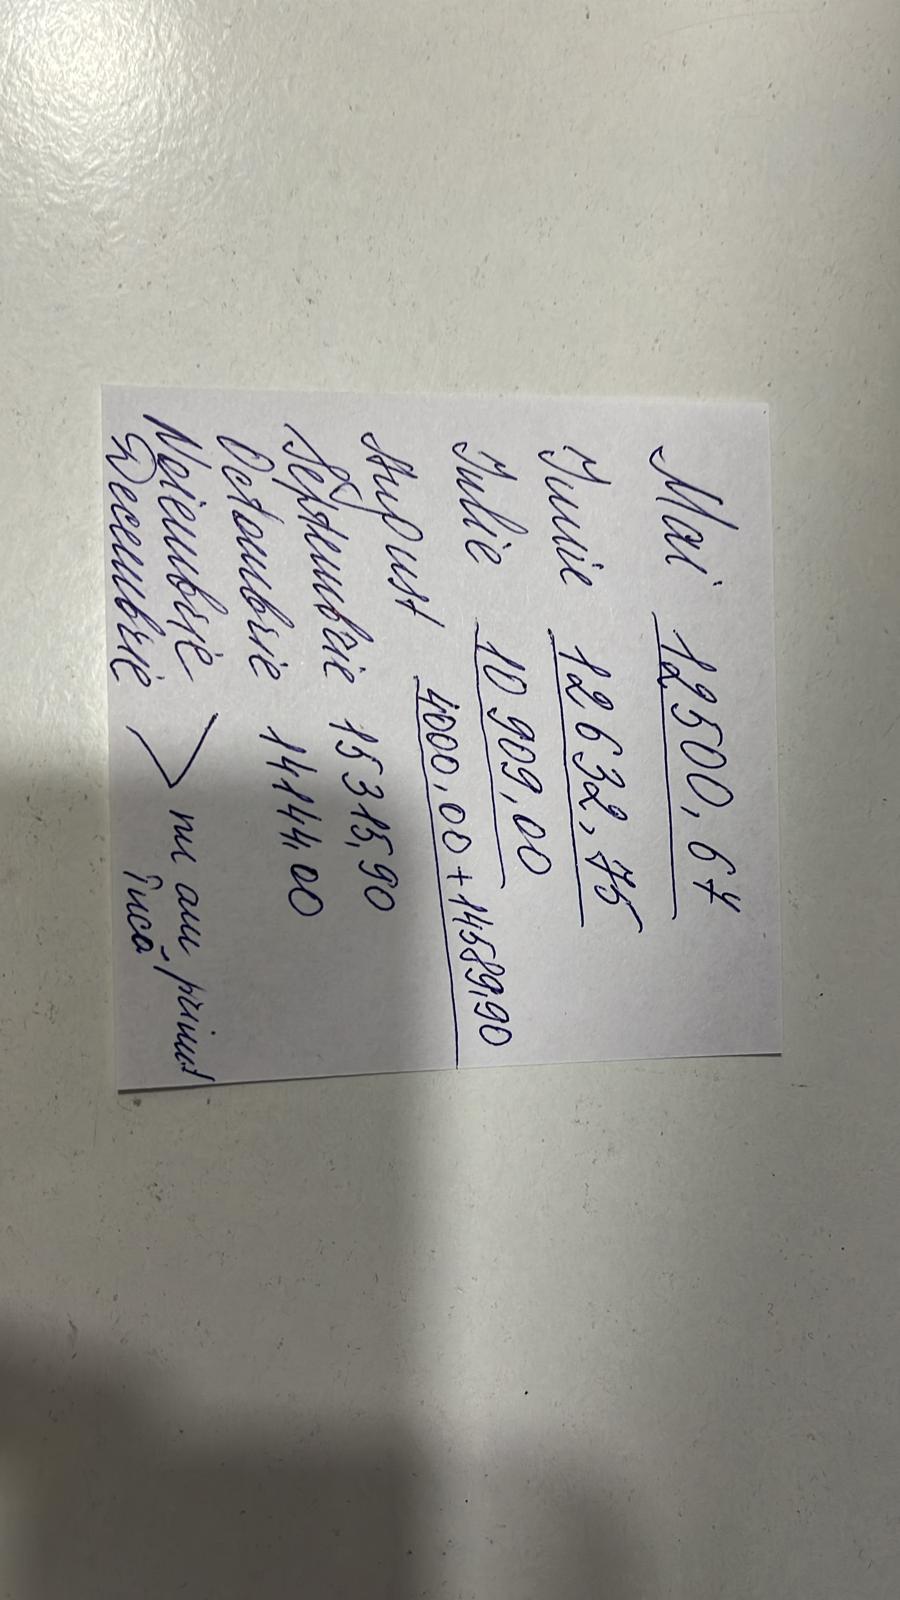 Mai 12500,67
Iunie 12632,75
Iulie 10909,00
August 4000,00 + 14589,90
Septembrie 15315,90
Octombrie 14144,00
Noiembrie
Decembrie
nu am primit
încă